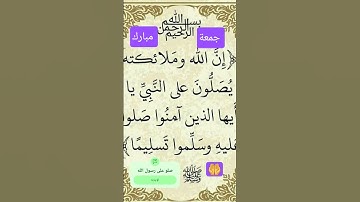 بسم الله الرحمن الرحيم
جمعة مبارك
﴿إِنَّ الله ومَلائكته
يُصَلُّونَ على النَّبِيِّ يا
أيها الذين آمنُوا صَلو
عليهِ وسَلِّموا تَسلِيمًا﴾
صلو على رسول الله
ﷺ